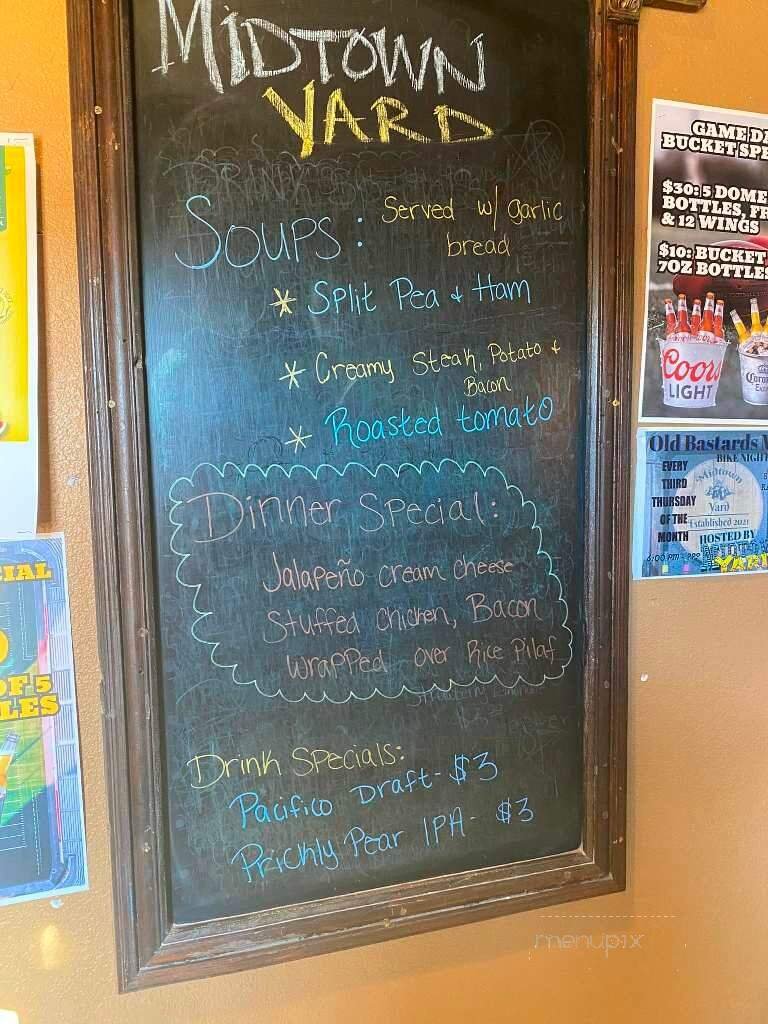 MIDTOWN
YARD
SOUPS: Served w/ garlic
bread
* Split Pea & Ham
* Creamy Steak, Potato &
Bacon
* Roasted tomato
Dinner Special:
Jalapeño cream cheese
Stuffed chicken, Bacon
wrapped over Rice Pilaf
Drink Specials:
Pacifico Draft - $3
Prickly Pear IPA - $3
GAME
BUCKET
$30: 5 DOME
BOTTLES,
& 12 WINGS
$10: BUCKET
7OZ BOTTLES
Coors
LIGHT
Old Bastards
BIKE NIGHT
EVERY
THIRD
THURSDAY
OF THE
MONTH
Midtown
Yard
Established 2021
HOSTED BY
6:00 PM
YARD
OF 5
menupix